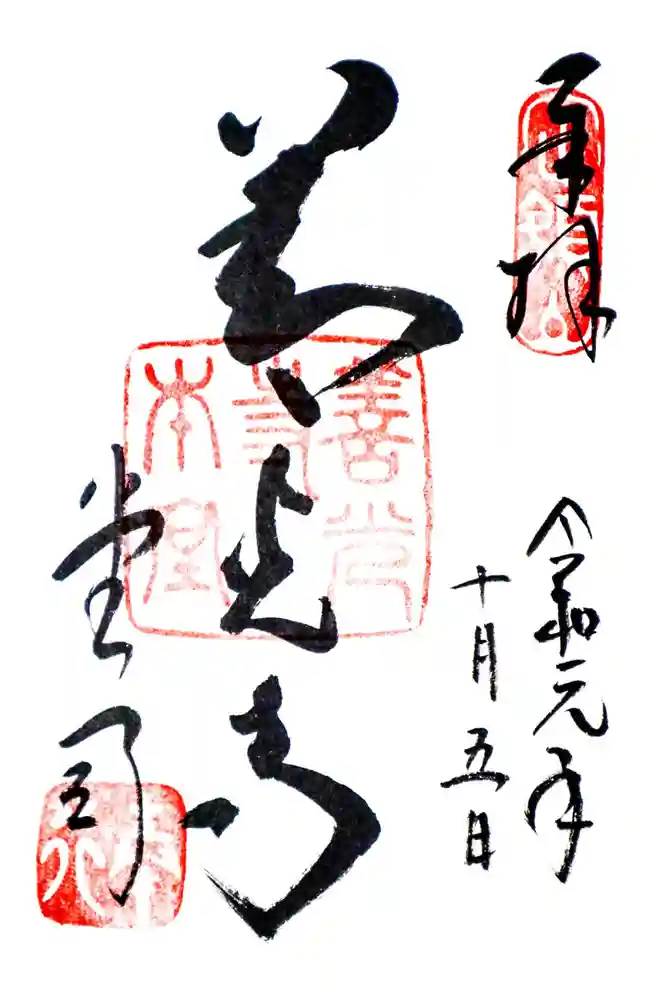 奉拝
令和元年
十月五日
善光寺
堂司
善光
寺
本堂